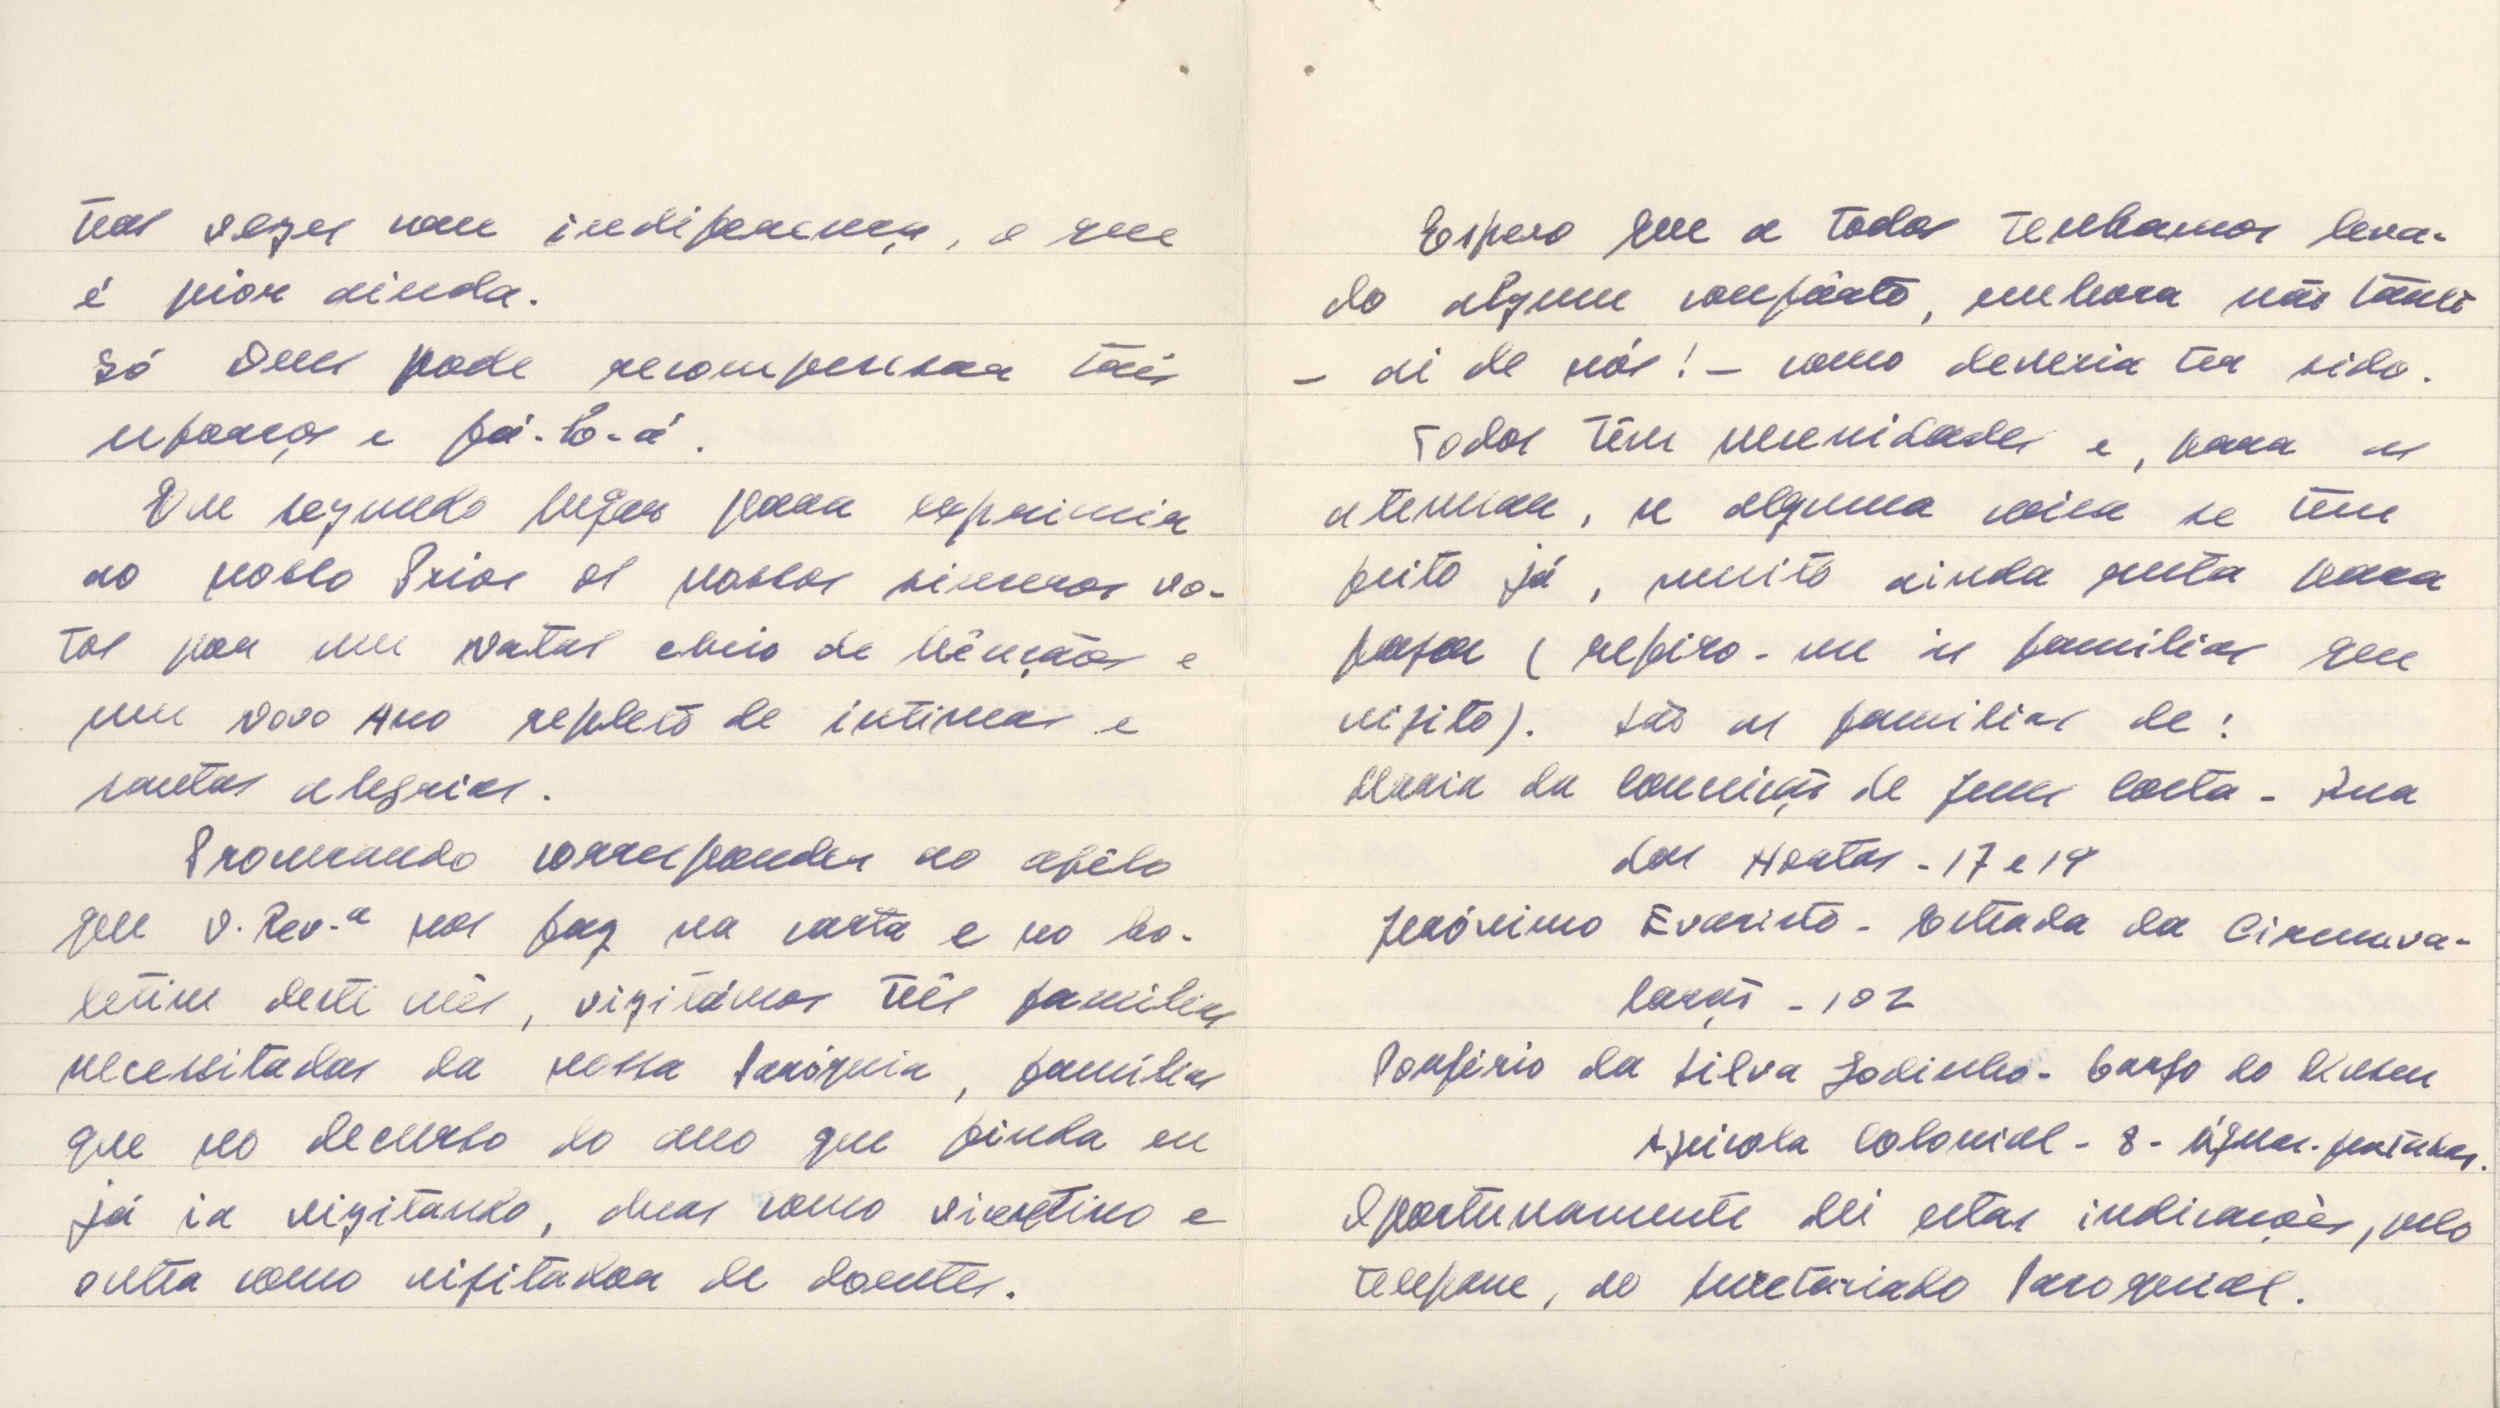 tras vezes com indiferença, o que
é pior ainda.
Só Deus pode recompensar tais
esforços e fá-lo-á.
Em segundo lugar para exprimir
ao nosso Prior os nossos sinceros vo-
tos por um Natal cheio de bênçãos e
um Novo Ano repleto de íntimas e
santas alegrias.
Procurando corresponder ao apêlo
que V. Rev.ª nos faz na carta e no bo-
letim deste mês, vizitámos três famílias
necessitadas da nossa Paróquia, famílias
que no decurso do ano que finda eu
já ia vizitando, duas como vicentino e
outra como visitador de doentes.
Espero que a todos tenhamos leva-
do algum confôrto, embora não tanto
- ai de nós! - como deveria ter sido.
Todos têm necessidades e, para as
atenuar, se alguma coisa se tem
feito já, muito ainda resta para
fazer (refiro-me às famílias que
visito). São as famílias de:
Maria da Conceição de Jesus Costa - Rua
das Hortas - 17 e 19
Jerónimo Evaristo - Estrada da Circunva-
lação - 102
Porfírio da Silva Godinho - Largo do Museu
Agricola Colonial - 8 - águas-furtadas.
Oportunamente dei estas indicações, pelo
telefone, ao Secretariado Paroquial.